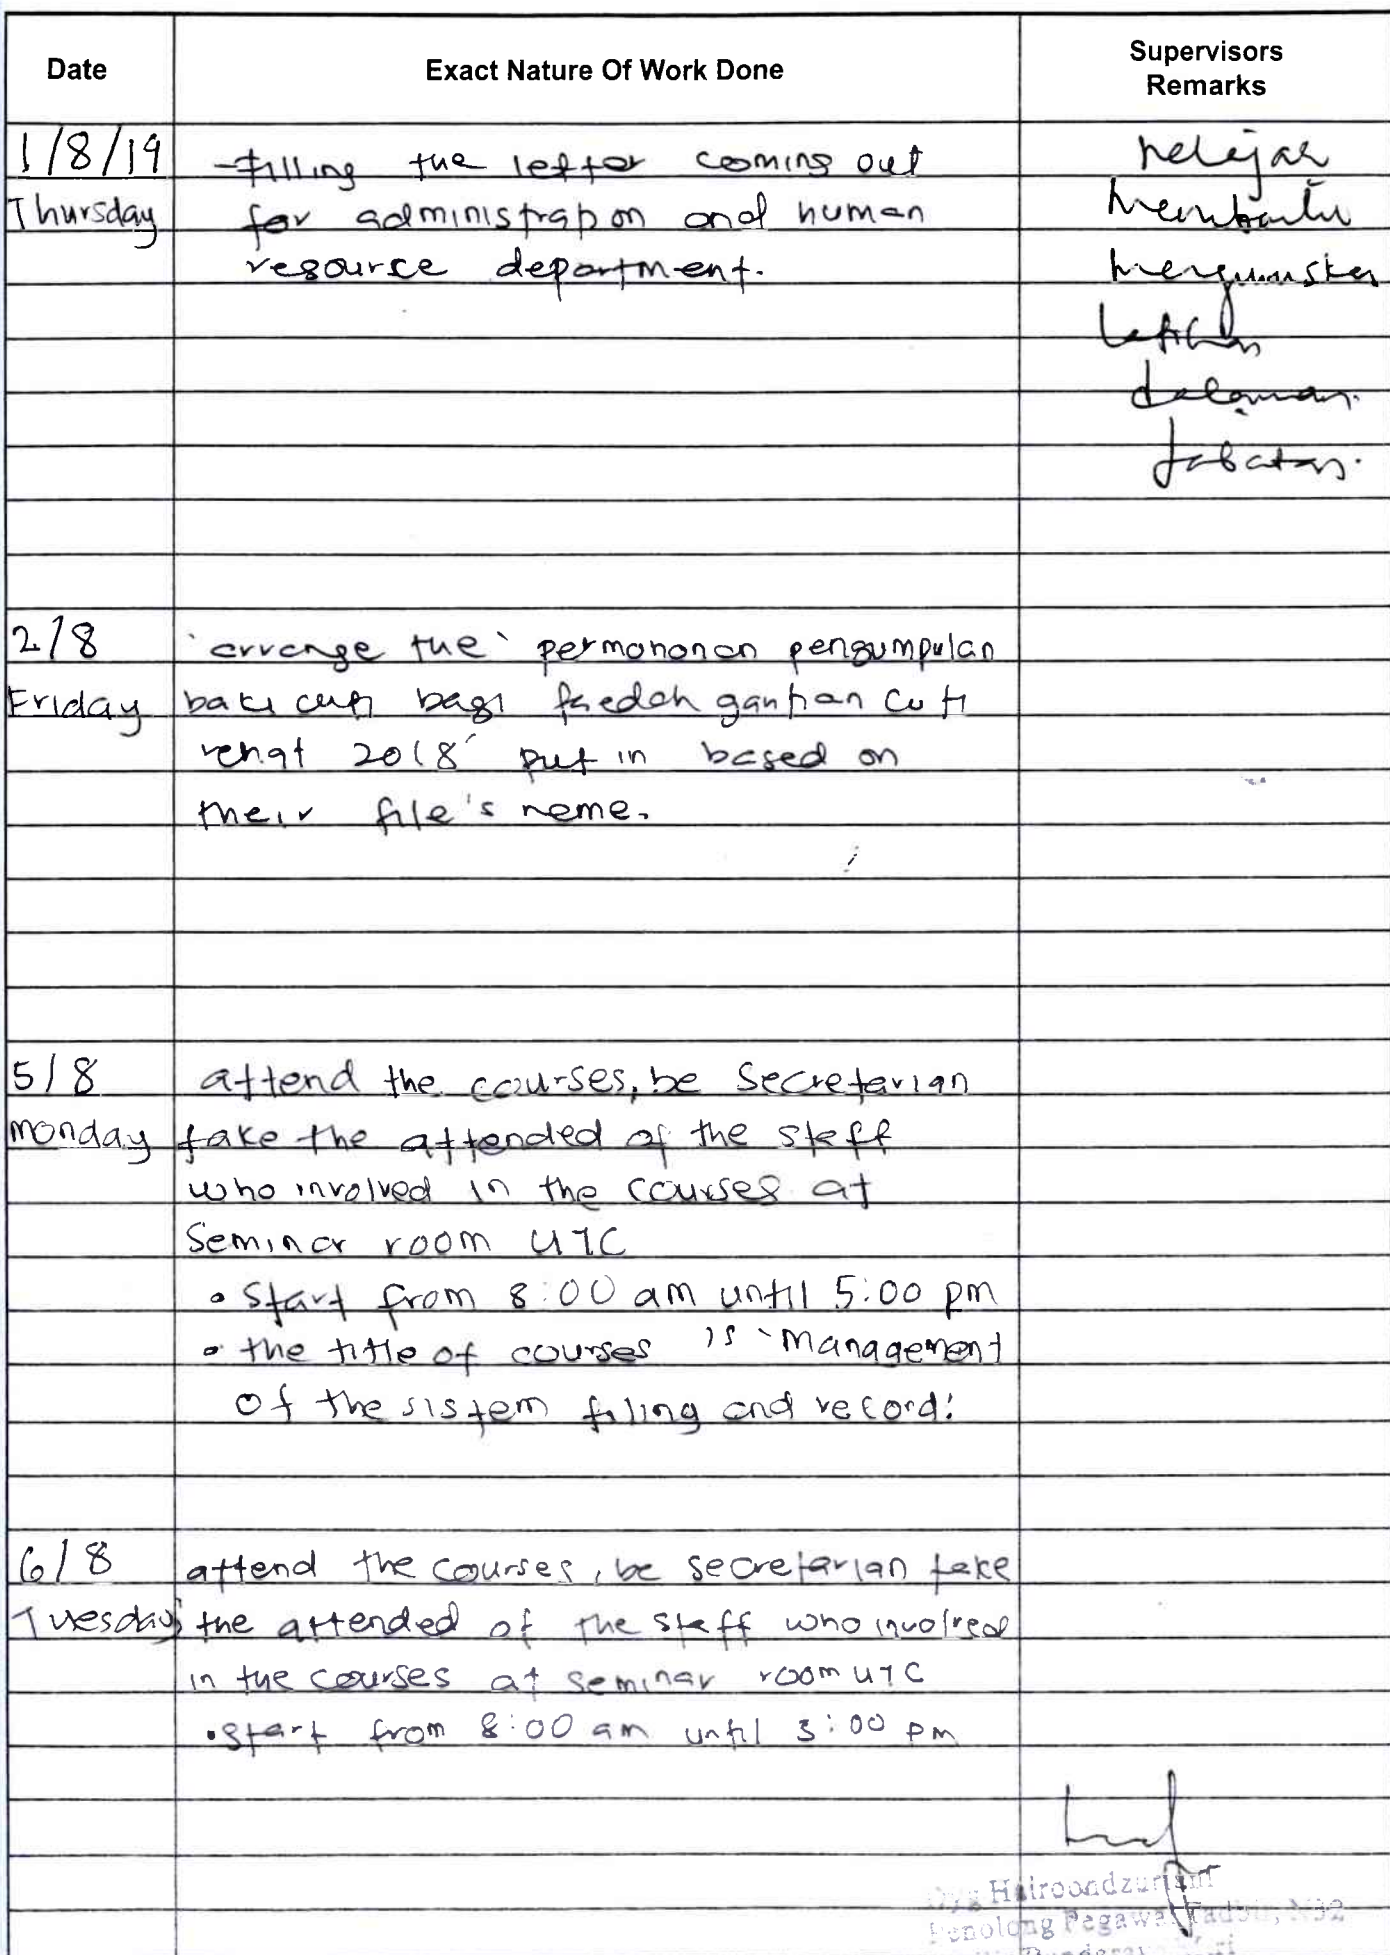 Date
Exact Nature Of Work Done
Supervisors
Remarks
1/8/19
Thursday
-Filling the letter coming out
for administration and human
resource department.
Pelajar
membantu
menguruskan
Latihan
dalaman
Jabatan.
2/8
Friday
'arrange the ' permohonan pengumpulan
baki cuti bagi faedah gantian cuti
rehat 2018' put in based on
their file's name.
5/8
Monday
attend the courses, be secretarian
take the attended of the staff
who involved in the courses at
Seminar room UTC
• Start from 8:00 am until 5:00 pm
• the title of courses is 'Management
of the sistem filing and record'.
6/8
Tuesday
attend the courses, be secretarian take
the attended of the staff who involved
in the courses at seminar room UTC
• start from 8:00 am until 5:00 pm
Penolong Pegawai Tadbir, N32